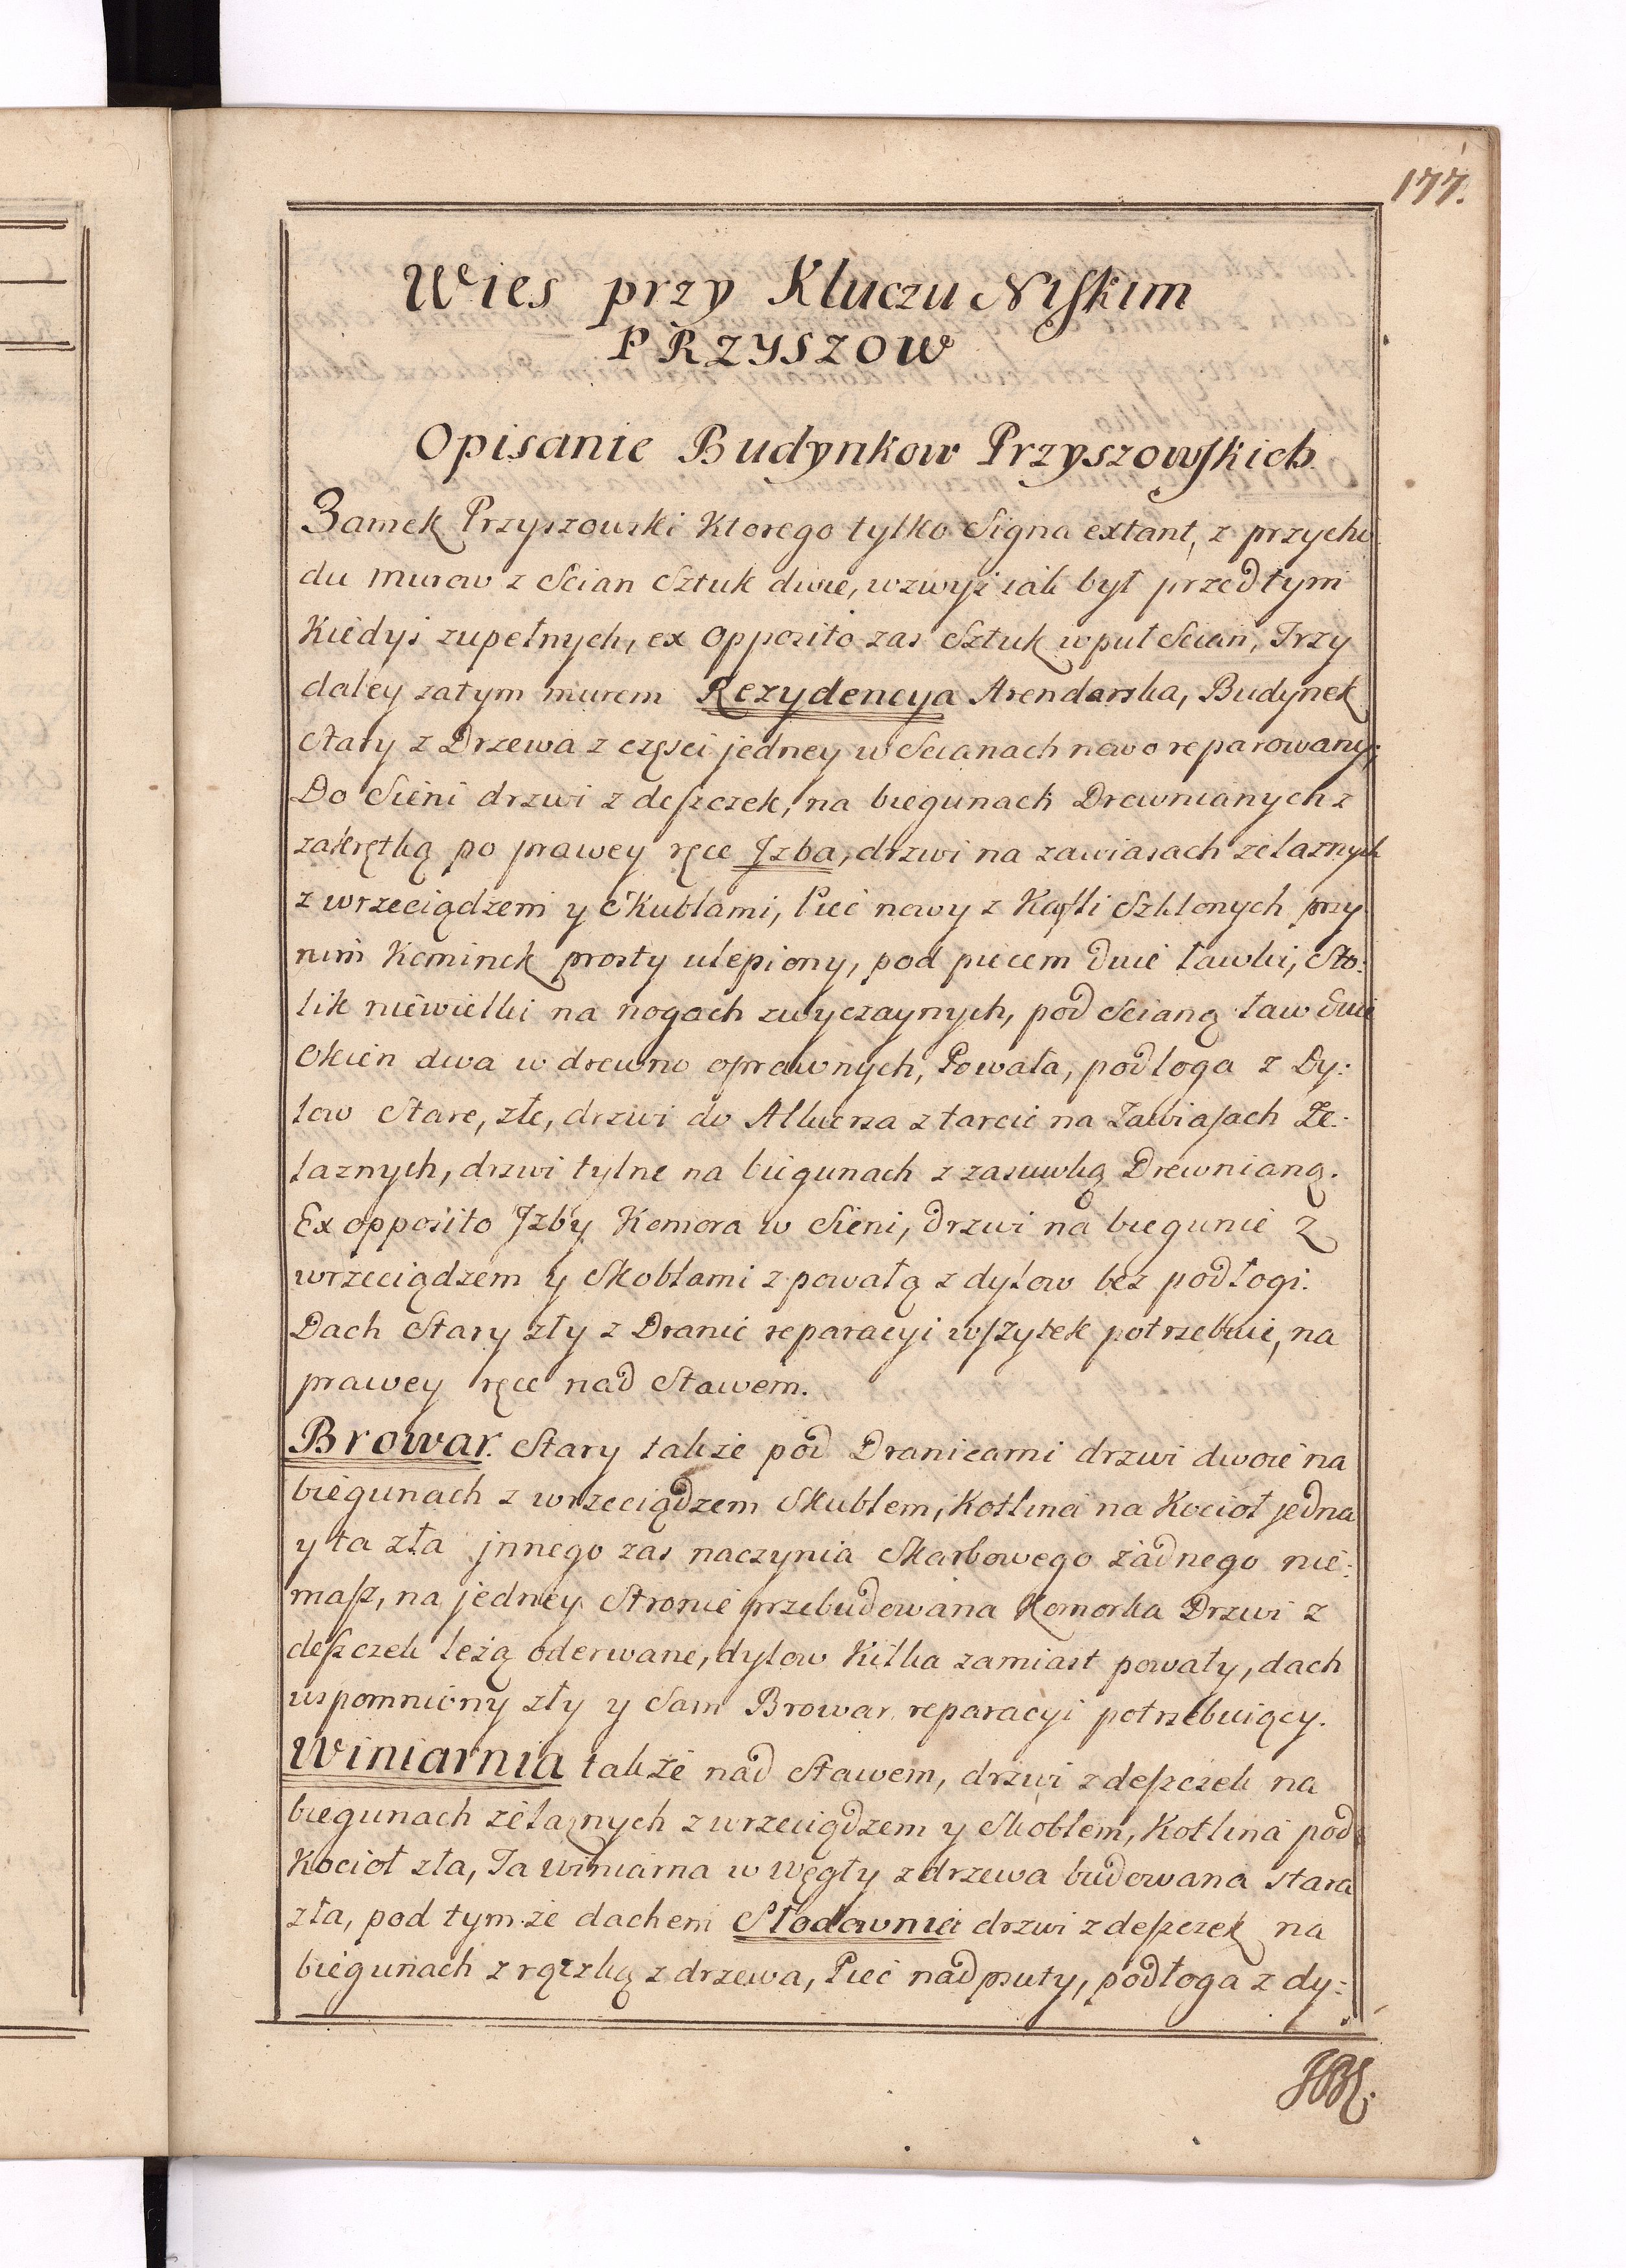 177.
Wies przy Kluczu Niskim
PRZYSZOW
Opisanie Budynkow Przyszowskich
Zamek Przyszowski Ktorego tylko Signa extant, z przycho
du murow z Scian Sztuk dwie, wzwyż iak był przed tym
Kiedyś zupełnych, ex Opposito zas Sztuk wpuł Scian, Trzy
daley zatym murem Rezydencya Arendarska, Budynek
Stary z Drzewa z części jedney w Scianach nowo reparowany;
Do Sieni drzwi z deszczek, na biegunach Drewnianych z
zakrętką po prawey ręce Jzba, drzwi na zawiasach żelaznych
z wrzeciądzem y Skublami, Piec nowy z Kafli Szklonych przy
nim Kominek prosty ulepiony, pod piecem dwie ławki, Sto:
lik niewielki na nogach zwyczaynych, pod Scianą ław dwie
Okien dwa w drewno oprawnych, Powała, podłoga z Dy:
low Stare, złe, drzwi do Alkierza z tarcic na Zawiasach Że:
laznych, drzwi tylne na biegunach z zasuwką Drewnianą.
Ex opposito Jzby Komora w Sieni, drzwi na biegunie Z
wrzeciądzem y Skoblami z powałą z dylow bez podłogi.
Dach Stary zły z Dranic reparacyi wszytek potrzebuie, na
prawey ręce nad Stawem.
Browar. Stary także pod Dranicami drzwi dwoie na
biegunach z wrzeciądzem Skublem, Kotlina na Kocioł jedna
y ta zła jnnego zas naczynia Skarbowego żadnego nie:
masz, na jedney Stronie przebudowana Komorka Drzwi z
deszczek leżą oderwane, dylow Kilka zamiast powały, dach
wspomniony zły y Sam Browar reparacyi potrzebuiący.
Winiarnia także nad Stawem, drzwi z deszczek na
biegunach żelaznych z wrzeciądzem y Skoblem, Kotlina pod
Kocioł zła, Ta Winiarna w Węgły z drzewa budowana stara
zła, pod tym że dachem Słodownia drzwi z deszczek na
biegunach z rączką z drzewa, Piec nadpsuty, podłoga z dy: